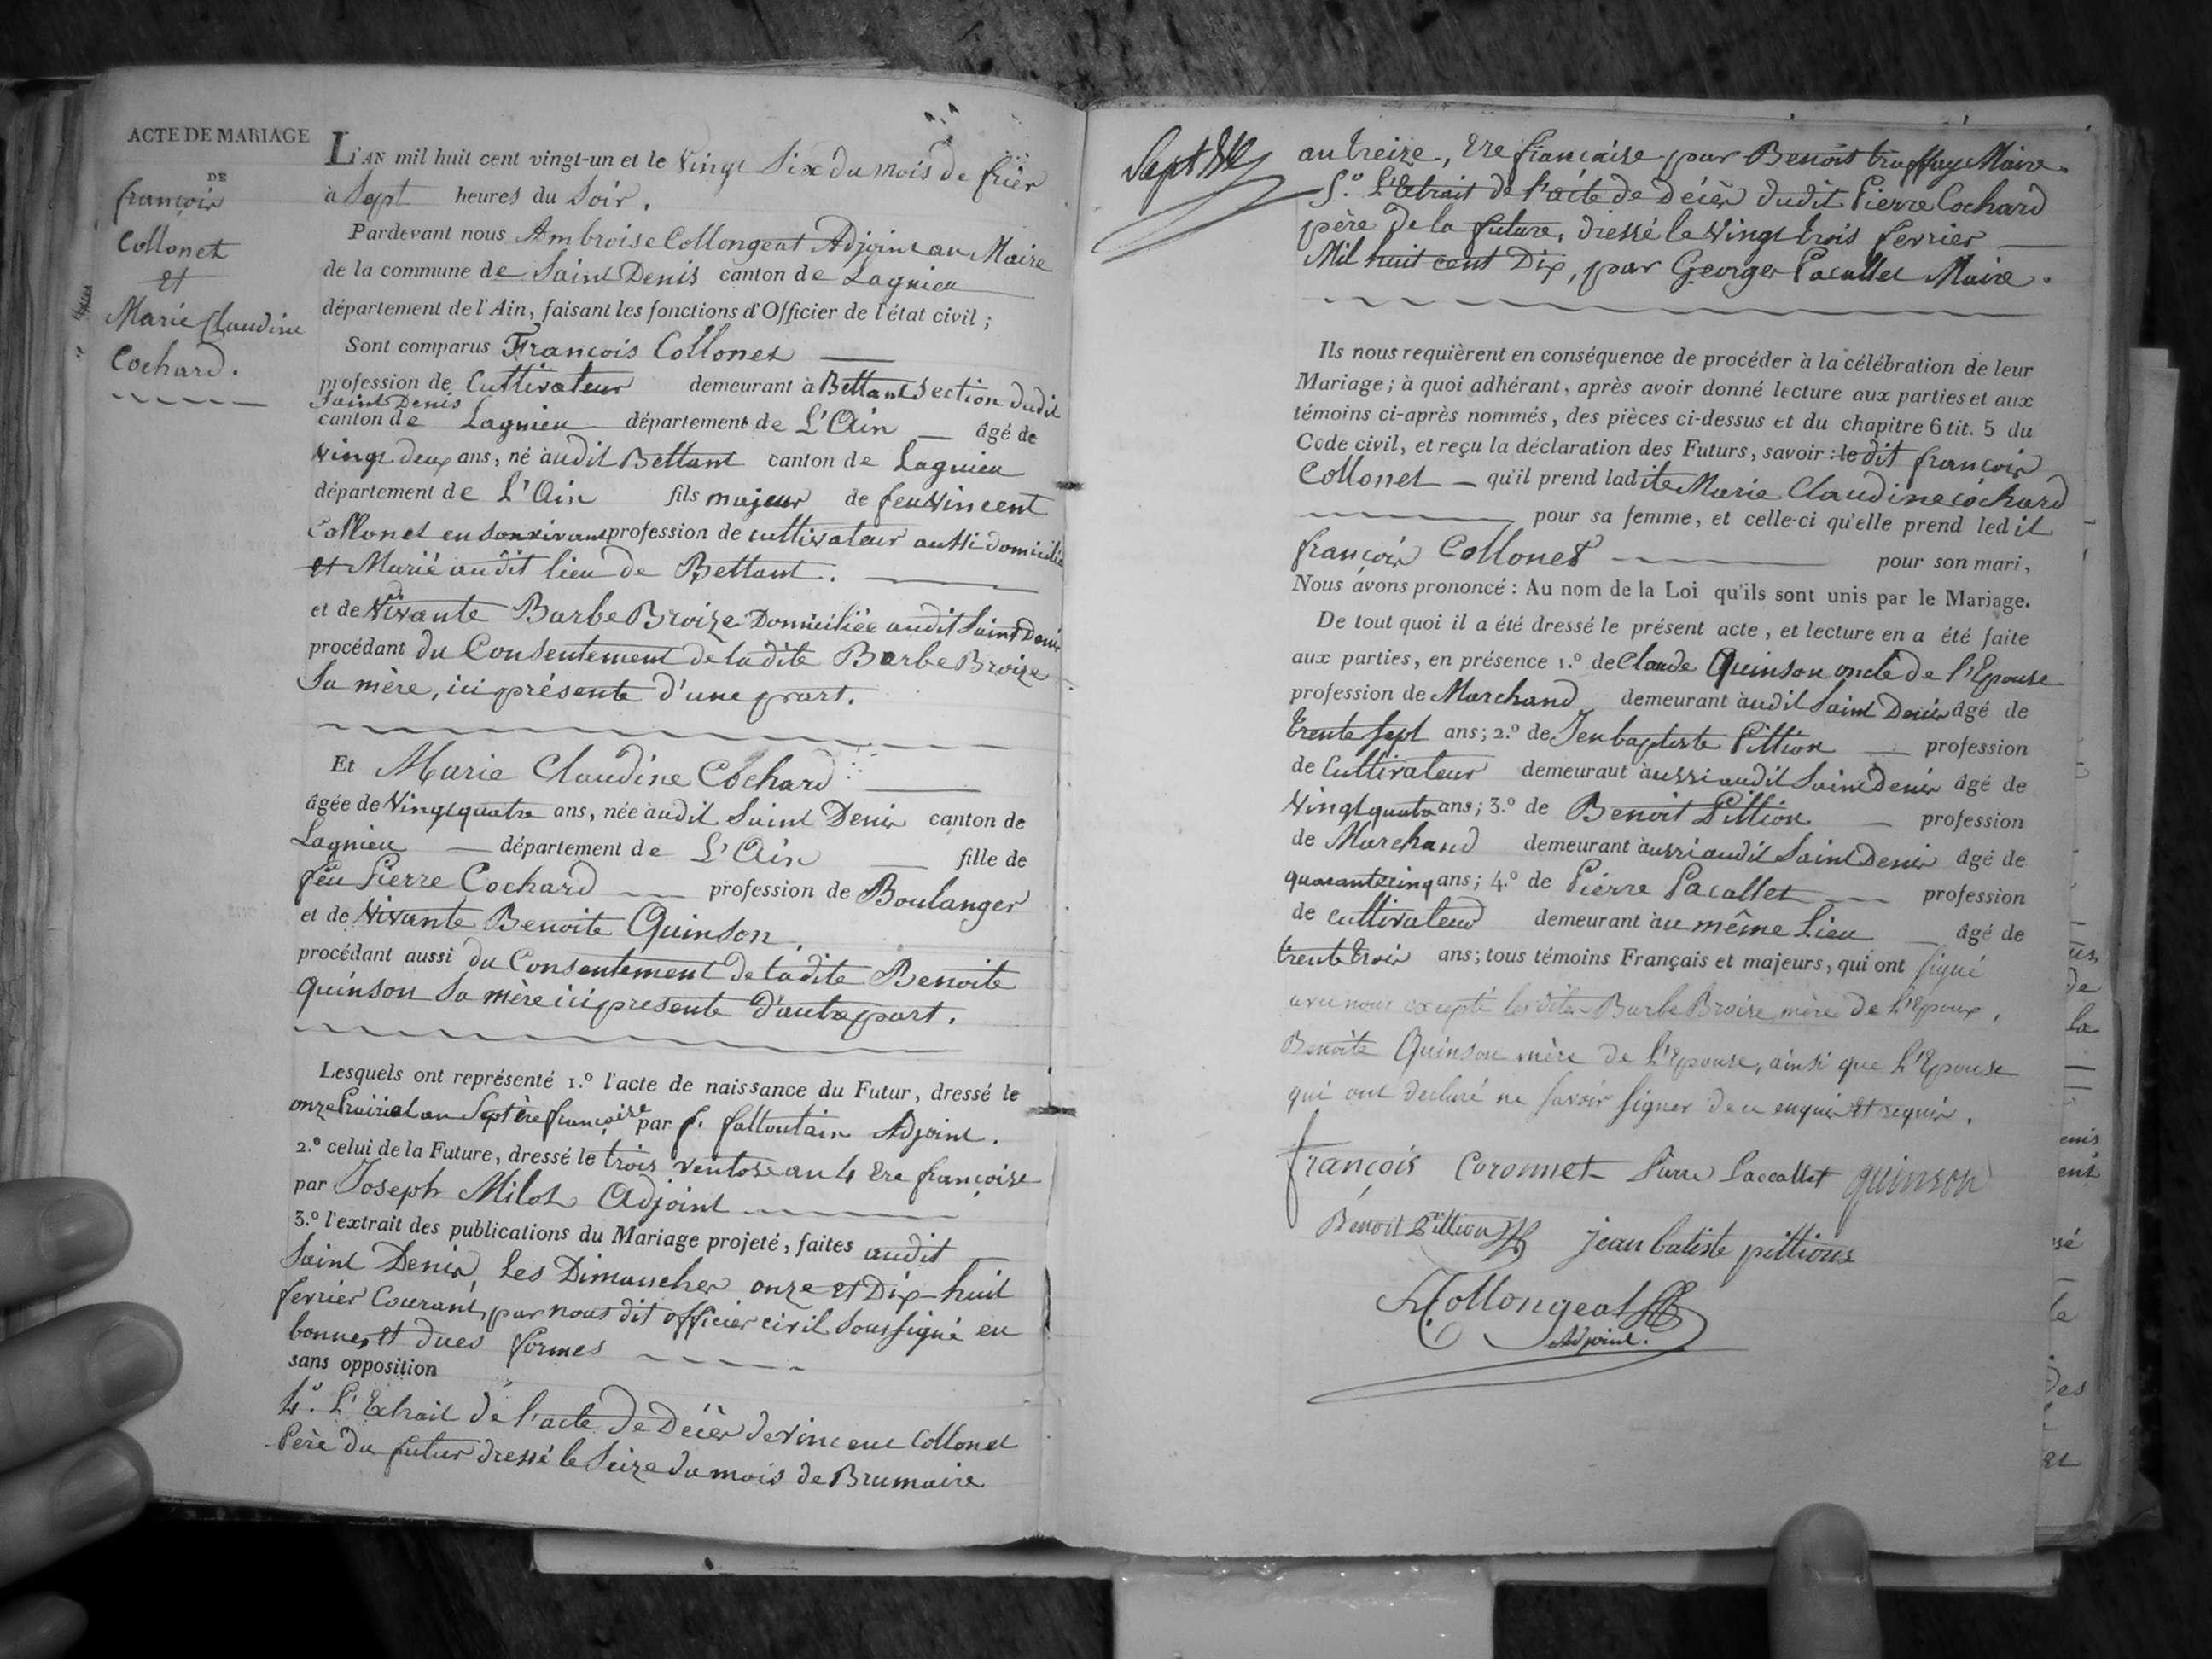 ACTE DE MARIAGE
DE
françois
Collonet
et
Marie Claudine
Cochard.
L'AN mil huit cent vingt-un et le Vingt Six du mois de frier
à Sept heures du Soir.
Pardevant nous Ambroise Collongeat Adjoint au Maire
de la commune de Saint Denis canton de Lagnieu
département de l'Ain, faisant les fonctions d'Officier de l'état civil ;
Sont comparus François Collonet
profession de Cultivateur demeurant à Bettant Section dudit
Saint Denis
canton de Lagnieu département de L'Ain âgé de
Vingt deux ans, né audit Bettant canton de Lagnieu
département de L'Ain fils majeur de feu Vincent
Collonet en son vivant profession de cultivateur aussi domicilié
et Marié audit lieu de Bettant.
et de Vivante Barbe Broize Domiciliée audit Saint Denis
procédant du Consentement de ladite Barbe Broize
Sa mère, ici présente d'une part.
Et Marie Claudine Cochard
âgée de Vingt quatre ans, née audit Saint Denis canton de
Lagnieu département de L'Ain fille de
feu Pierre Cochard profession de Boulanger
et de Vivante Benoite Quinson,
procédant aussi du Consentement de ladite Benoite
Quinson Sa mère ici presente d'autre part.
Lesquels ont représenté 1.º l'acte de naissance du Futur, dressé le
onze Prairial an Sept ère françoise par f. falloutain Adjoint.
2.º celui de la Future, dressé le trois ventose an 4 ère françoise
par Joseph Milot Adjoint
3.º l'extrait des publications du Mariage projeté, faites audit
Saint Denis, Les Dimanches onze et Dix-huit
fevrier Courant, par nous dit officier civil Soussigné en
bonnes et dues formes
sans opposition
4.º L'Extrait de l'acte de Décès de Vincent Collonet
Père du futur dressé le Seize du mois de Brumaire
Sept
an treize, Ere française par Benoit truffay Maire.
5.º L'Extrait de l'acte de décès dudit Pierre Cochard
père de la future, dressé le Vingt trois fevrier
Mil huit cent Dix, par George Pacallet Maire.
Ils nous requièrent en conséquence de procéder à la célébration de leur
Mariage ; à quoi adhérant, après avoir donné lecture aux parties et aux
témoins ci-après nommés, des pièces ci-dessus et du chapitre 6 tit. 5 du
Code civil, et reçu la déclaration des Futurs, savoir : le dit françois
Collonet qu'il prend ladite Marie Claudine cochard
pour sa femme, et celle-ci qu'elle prend ledit
françois Collonet pour son mari,
Nous avons prononcé : Au nom de la Loi qu'ils sont unis par le Mariage.
De tout quoi il a été dressé le présent acte, et lecture en a été faite
aux parties, en présence 1.º de Claude Quinson oncle de l'Epouse
profession de Marchand demeurant audit Saint Denis âgé de
trente Sept ans ; 2.º de Jenbaptiste Pittion profession
de Cultivateur demeuraut aussi audit Saint Denis âgé de
Vingt quatre ans ; 3.º de Benoit Pittion profession
de Marchand demeurant aussi audit Saint Denis âgé de
quarante cinq ans ; 4.º de Pierre Pacallet profession
de cultivateur demeurant au même Lieu âgé de
trente trois ans ; tous témoins Français et majeurs, qui ont signé
avec nous excepté lesdites Barbe Broise mère de l'Epoux,
Benoite Quinson mère de L'Epouse, ainsi que L'Epouse
qui ont declaré ne savoir signer de ce enquis et requis.
françois Coronnet Pierre Paccallet quinson
Benoit Pittion jean batiste pittions
A Collongeat
Adjoint.